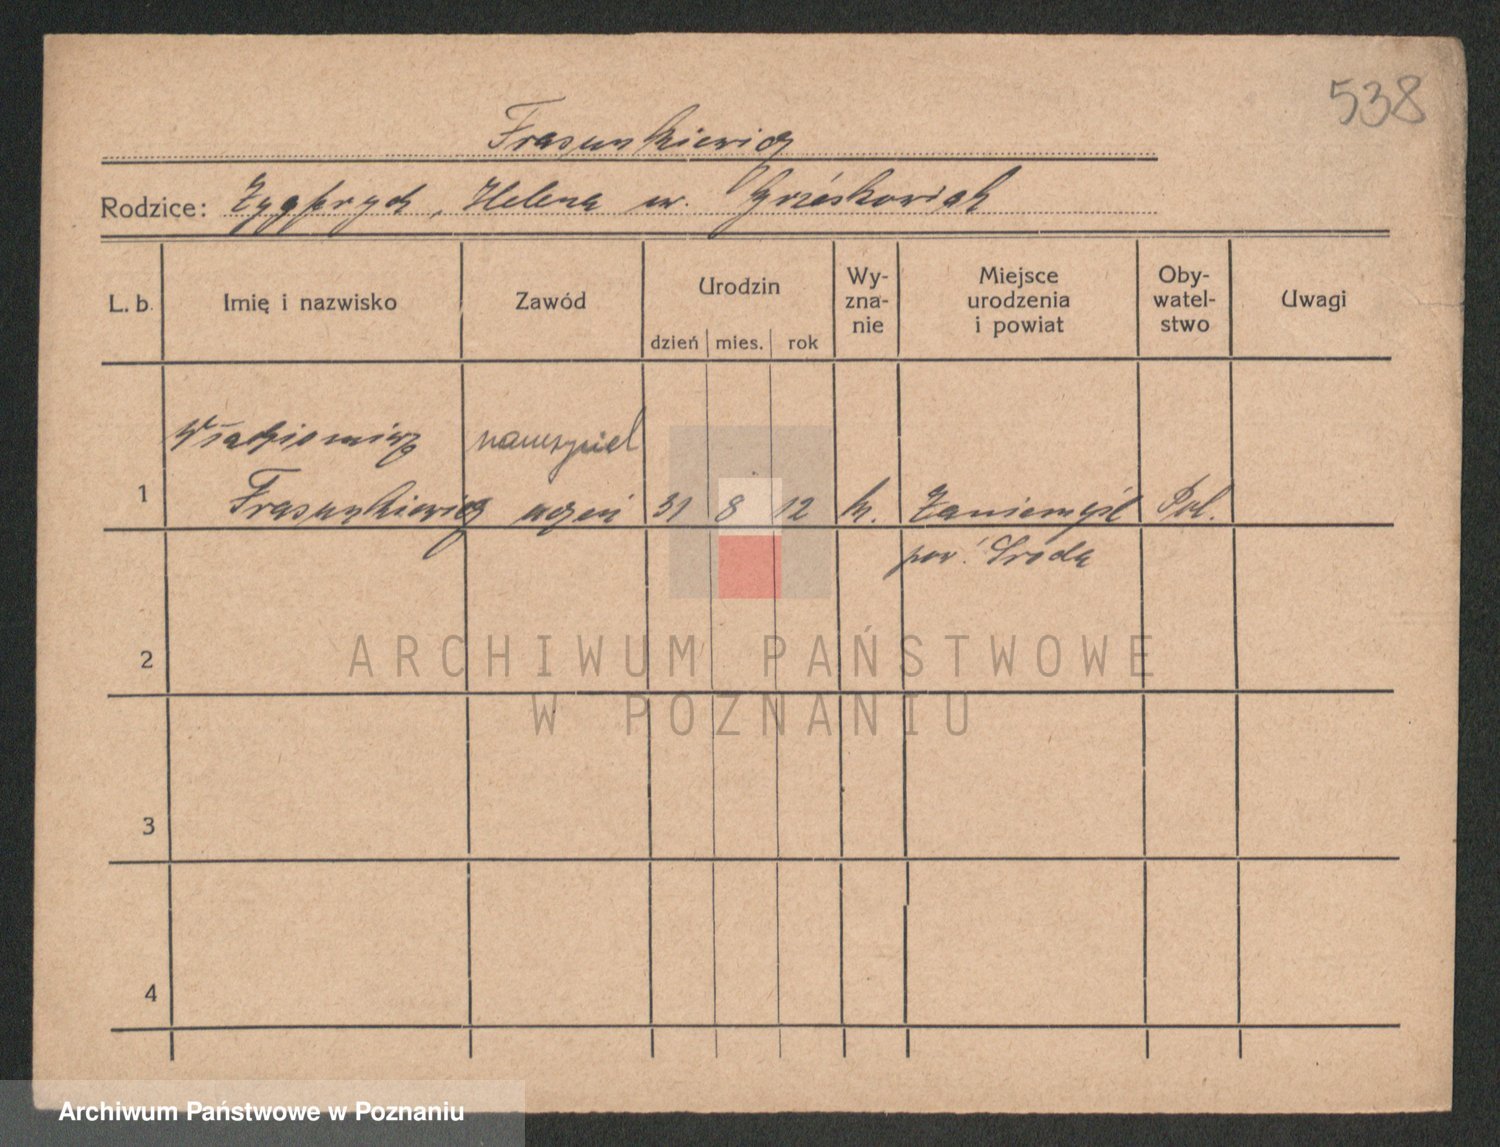 538
Frasunkiewicz
Rodzice: Zygfryd, Helena ur. Grześkowiak
L. b. Imię i nazwisko Zawód Urodzin Wy-zna-nie Miejsce urodzenia i powiat Oby-watel-stwo Uwagi
dzień mies. rok
Włodzimierz nauczyciel
1 Frasunkiewicz uczeń 31 8 12 k. Zaniemyśl Pol.
pow. Środa
2
ARCHIWUM PAŃSTWOWE
W POZNANIU
3
4
Archiwum Państwowe w Poznaniu